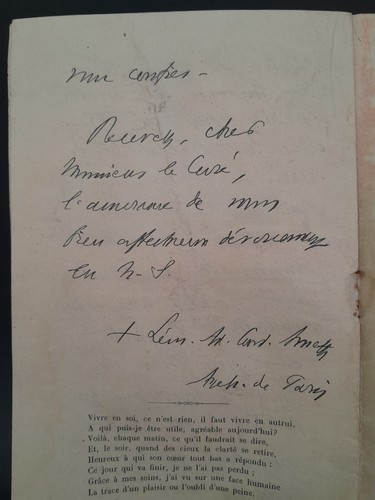 Recevez, cher
Monsieur le Curé,
l'assurance de mon
bien affectueux dévouement
en N.-S.
+ Léon. Ad. Card. Amette
Arch. de Paris
Vivre en soi, ce n'est rien, il faut vivre en autrui,
A qui puis-je être utile, agréable aujourd'hui?
Voilà, chaque matin, ce qu'il faudrait se dire,
Et, le soir, quand des cieux la clarté se retire,
Heureux à qui son cœur tout bas a répondu :
Ce jour qui va finir, je ne l'ai pas perdu ;
Grâce à mes soins, j'ai vu sur une face humaine
La trace d'un plaisir ou l'oubli d'une peine,